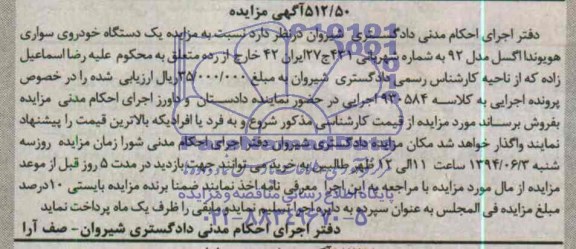 ۵۱۲/۵۰آگهی مزایده
دفتر اجرای احکام مدنی دادگستری شیروان درنظر دارد نسبت به مزایده یک دستگاه خودروی سواری
هیوندا اکسل مدل ۹۲ به شماره شهربانی ۴۳۱ج۲۷ایران ۴۲ خارج از رده متعلق به محکوم علیه رضا اسماعیل
زاده که از ناحیه کارشناس رسمی دادگستری شیروان به مبلغ ۳۵/۰۰۰/۰۰۰ریال ارزیابی شده را در خصوص
پرونده اجرایی به کلاسه ۹۳۰۵۸۴ اجرایی در حضور نماینده دادستان و داورز اجرای احکام مدنی مزایده
بفروش برساند مورد مزایده از قیمت کارشناسی مذکور شروع و به فرد یا افرادیکه بالاترین قیمت را پیشنهاد
نمایند واگذار خواهد شد مکان مزایده دادگستری شیروان دفتر اجرای احکام مدنی شورا زمان مزایده روزسه
شنبه ۱۳۹۴/۰۶/۳ ساعت ۱۱الی ۱۲ ظهر طالبین به خرید می توانند جهت بازدید در مدت ۵ روز قبل از موعد
مزایده از مال مورد مزایده با مراجعه به این اجرا معرفی نامه اخذ نمایند ضمنا برنده مزایده بایستی ۱۰درصد
مبلغ مزایده فی المجلس به عنوان سپرده به دایره اجرا تسلیم نماید مابقی را ظرف یک ماه پرداخت نماید
دفتر اجرای احکام مدنی دادگستری شیروان- صف آرا
پایگاه اطلاع رسانی مناقصه و مزایده
۰۲۱-۸۸۳۴۹۶۷۰-۵